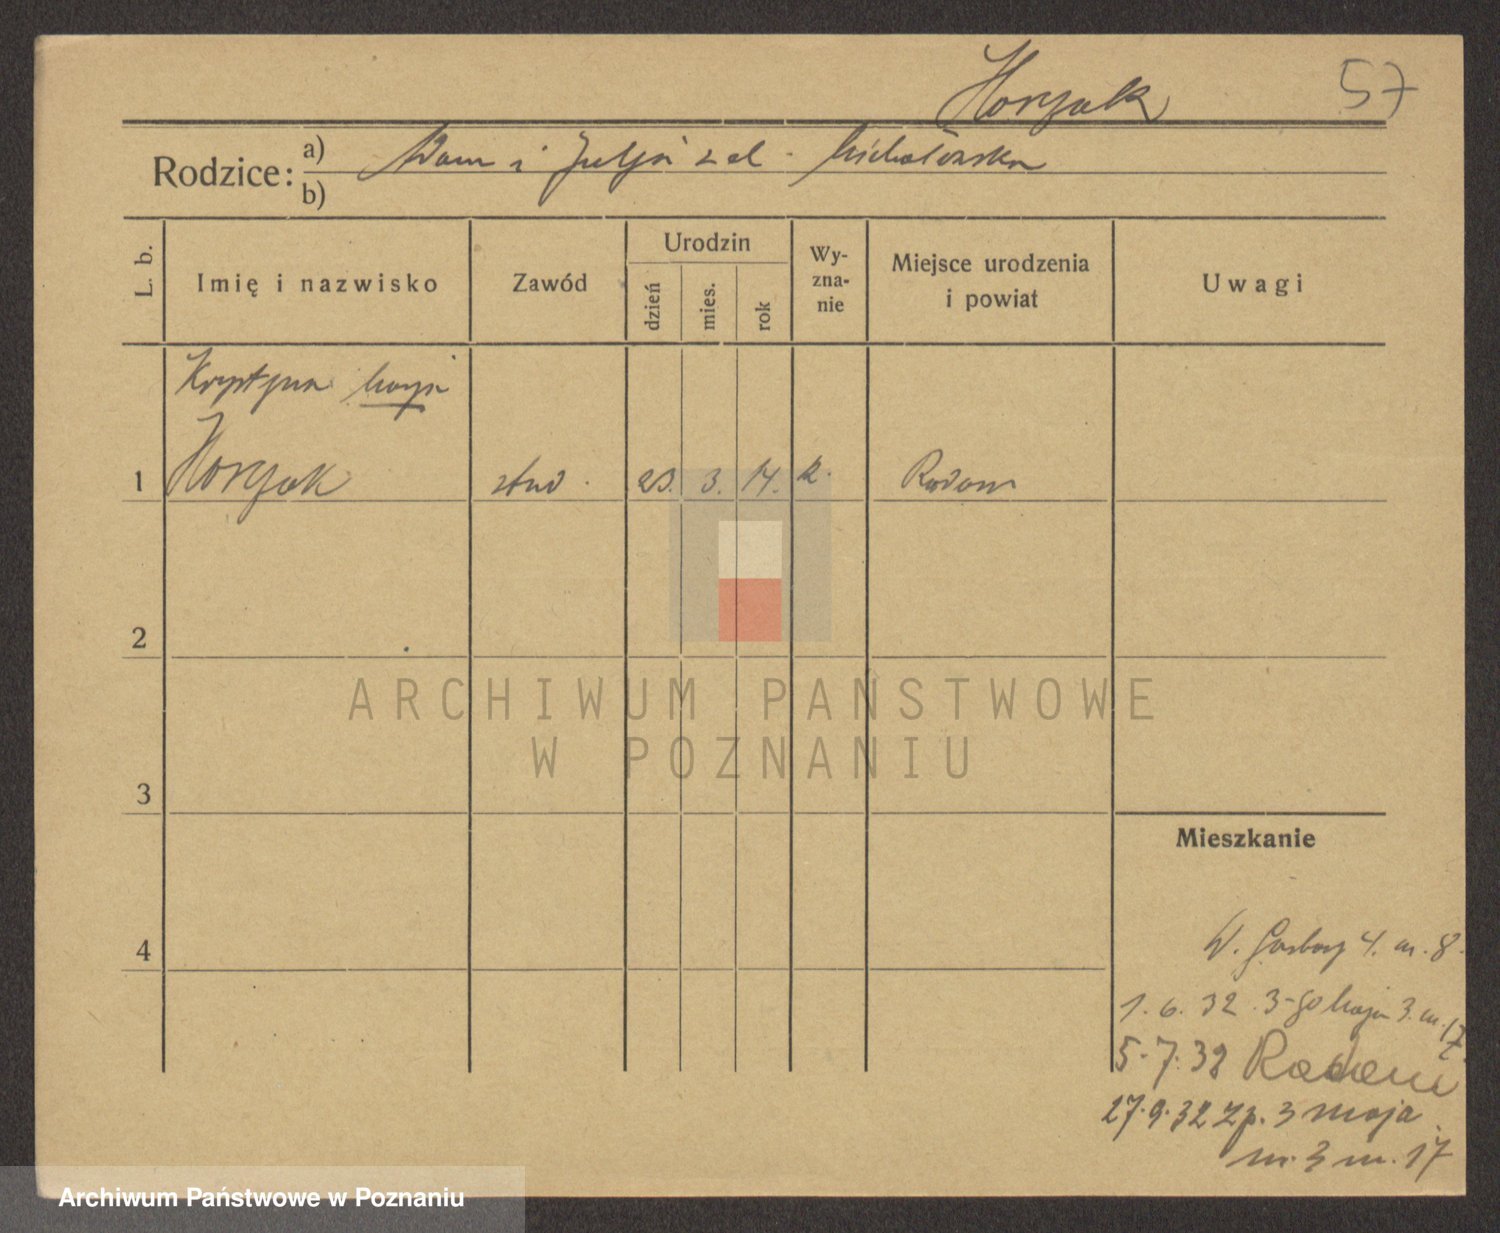 Horzak 57
Rodzice: a) Adam i Julja z d. Michalowska
b)
L. b. Imię i nazwisko Zawód Urodzin dzień mies. rok Wy-zna-nie Miejsce urodzenia i powiat Uwagi
Krystyna Marja
1 Horzak stud. 23. 3. 14. k. Radom
2
ARCHIWUM PAŃSTWOWE
W POZNANIU
3
Mieszkanie
4
W. Garbary 4. m. 8.
1. 6. 32. 3-go Maja 3. m. 17.
5. 7. 32 Radom
27. 9. 32 zp. 3 maja
nr. 3 m. 17
Archiwum Państwowe w Poznaniu